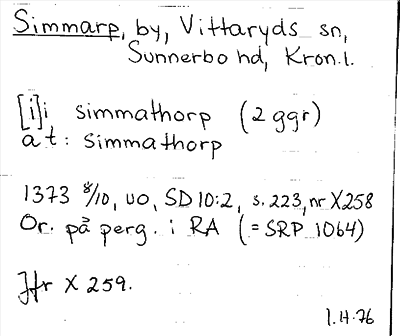 Simmarp, by, Vittaryds sn,
Sunnerbo hd, Kron.l.
[i]i simmathorp (2 ggr)
at: Simmathorp
1373 8/10, uo, SD 10:2, s. 223, nr X258
Or. på perg. i RA (= SRP 1064)
Jfr X 259.
1.4.76